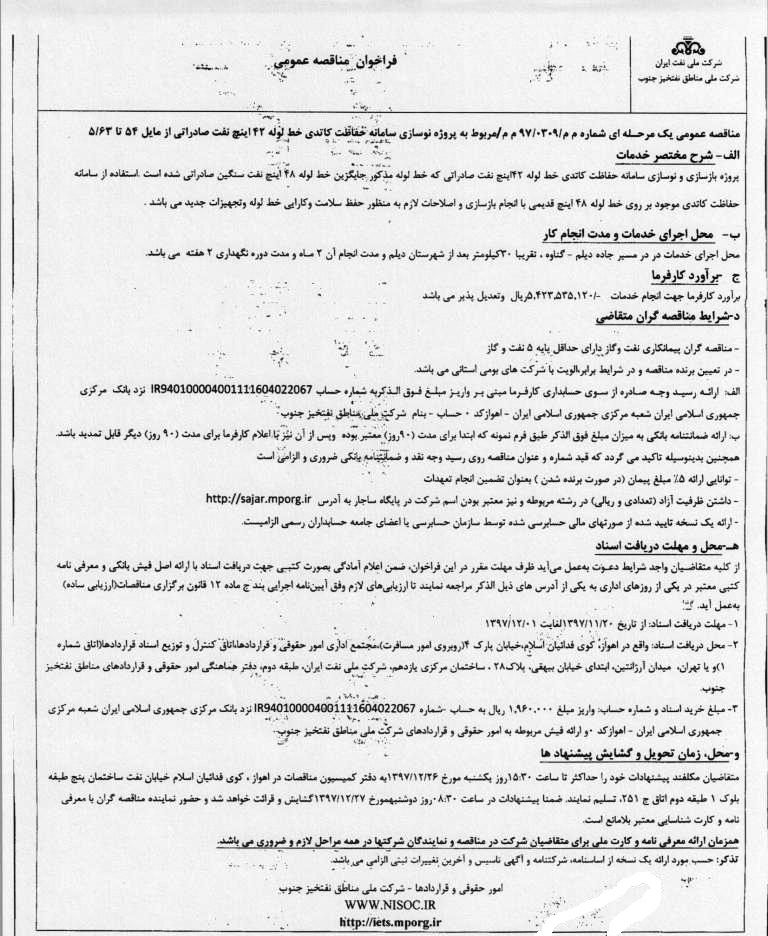 شرکت ملی نفت ایران
شرکت ملی مناطق نفتخیز جنوب
فراخوان مناقصه عمومی
مناقصه عمومی یک مرحله ای شماره م م/۹۷/۰۳۰۹ م م/مربوط به پروژه نوسازی سامانه حفاظت کاتدی خط لوله ۴۲ اینچ نفت صادراتی از مایل ۵۴ تا ۵/۶۳
الف- شرح مختصر خدمات
پروژه بازسازی و نوسازی سامانه حفاظت کاتدی خط لوله ۴۲اینچ نفت صادراتی که خط لوله مذکور جایگزین خط لوله ۴۸ اینچ نفت سنگین صادراتی شده است .استفاده از سامانه
حفاظت کاتدی موجود بر روی خط لوله ۴۸ اینچ قدیمی با انجام بازسازی و اصلاحات لازم به منظور حفظ سلامت وکارایی خط لوله وتجهیزات جدید می باشد .
ب- محل اجرای خدمات و مدت انجام کار
محل اجرای خدمات در در مسیر جاده دیلم - گناوه ، تقریبا ۳۰کیلومتر بعد از شهرستان دیلم و مدت انجام آن ۳ ماه و مدت دوره نگهداری ۲ هفته می باشد.
ج -برآورد کارفرما
برآورد کارفرما جهت انجام خدمات -/۵,۴۲۳,۵۳۵,۱۲۰ریال وتعدیل پذیر می باشد
د-شرایط مناقصه گران متقاضی
- مناقصه گران پیمانکاری نفت وگاز دارای حداقل پایه ۵ نفت و گاز
- در تعیین برنده مناقصه و در شرایط برابر،الویت با شرکت های بومی استانی می باشد.
الف: ارائه رسید وجه صادره از سوی حسابداری کارفرما مبنی بر واریز مبلغ فوق الذکربه شماره حساب IR940100004001111604022067 نزد بانک مرکزی
جمهوری اسلامی ایران شعبه مرکزی جمهوری اسلامی ایران - اهوازکد ۰ حساب - بنام شرکت ملی مناطق نفتخیز جنوب.
ب: ارائه ضمانتنامه بانکی به میزان مبلغ فوق الذکر طبق فرم نمونه که ابتدا برای مدت (۹۰روز) معتبر بوده وپس از آن نیز با اعلام کارفرما برای مدت (۹۰ روز) دیگر قابل تمدید باشد.
همچنین بدینوسیله تاکید می گردد که قید شماره و عنوان مناقصه روی رسید وجه نقد و ضمانتنامه بانکی ضروری و الزامی است
- توانایی ارائه ۵٪ مبلغ پیمان (در صورت برنده شدن ) بعنوان تضمین انجام تعهدات
- داشتن ظرفیت آزاد (تعدادی و ریالی) در رشته مربوطه و نیز معتبر بودن اسم شرکت در پایگاه ساجار به آدرس http://sajar.mporg.ir
- ارائه یک نسخه تایید شده از صورتهای مالی حسابرسی شده توسط سازمان حسابرسی یا اعضای جامعه حسابداران رسمی الزامیست.
هـ-محل و مهلت دریافت اسناد
از کلیه متقاضیان واجد شرایط دعوت به‌عمل می‌آید ظرف مهلت مقرر در این فراخوان، ضمن اعلام آمادگی بصورت کتبی جهت دریافت اسناد با ارائه اصل فیش بانکی و معرفی نامه
کتبی معتبر در یکی از روزهای اداری به یکی از آدرس های ذیل الذکر مراجعه نمایند تا ارزیابی‌های لازم وفق آیین‌نامه اجرایی بند ج ماده ۱۲ قانون برگزاری مناقصات(ارزیابی ساده)
به‌عمل آید.
۱- مهلت دریافت اسناد: از تاریخ ۱۳۹۷/۱۱/۲۰لغایت ۱۳۹۷/۱۲/۰۱
۲- محل دریافت اسناد: واقع در اهواز، کوی فدائیان اسلام،خیابان پارک ۴(روبروی امور مسافرت)،مجتمع اداری امور حقوقی و قراردادها،اتاق کنترل و توزیع اسناد قراردادها(اتاق شماره
۱)و یا تهران، میدان آرژانتین، ابتدای خیابان بیهقی، پلاک۲۸ ، ساختمان مرکزی یازدهم، شرکت ملی نفت ایران، طبقه دوم، دفتر هماهنگی امور حقوقی و قراردادهای مناطق نفتخیز
جنوب.
۳- مبلغ خرید اسناد و شماره حساب: واریز مبلغ ۱,۹۶۰,۰۰۰ ریال به حساب -شماره IR940100004001111604022067 نزد بانک مرکزی جمهوری اسلامی ایران شعبه مرکزی
جمهوری اسلامی ایران - اهوازکد ۰و ارائه فیش مربوطه به امور حقوقی و قراردادهای شرکت ملی مناطق نفتخیز جنوب.
و-محل، زمان تحویل و گشایش پیشنهاد ها
متقاضیان مکلفند پیشنهادات خود را حداکثر تا ساعت ۱۵:۳۰روز یکشنبه مورخ ۱۳۹۷/۱۲/۲۶به دفتر کمیسیون مناقصات در اهواز ، کوی فدائیان اسلام خیابان نفت ساختمان پنج طبقه
بلوک ۱ طبقه دوم اتاق ج ۲۵۱، تسلیم نمایند. ضمنا پیشنهادات در ساعت ۰۸:۳۰روز دوشنبهمورخ ۱۳۹۷/۱۲/۲۷گشایش و قرائت خواهد شد و حضور نماینده مناقصه گران با معرفی
نامه و کارت شناسایی معتبر بلامانع است.
همزمان ارائه معرفی نامه و کارت ملی برای متقاضیان شرکت در مناقصه و نمایندگان شرکتها در همه مراحل لازم و ضروری می باشد.
تذکر: حسب مورد ارائه یک نسخه از اساسنامه، شرکتنامه و آگهی تاسیس و آخرین تغییرات ثبتی الزامی می‌باشد.
امور حقوقی و قراردادها - شرکت ملی مناطق نفتخیز جنوب
WWW.NISOC.IR
http://iets.mporg.ir